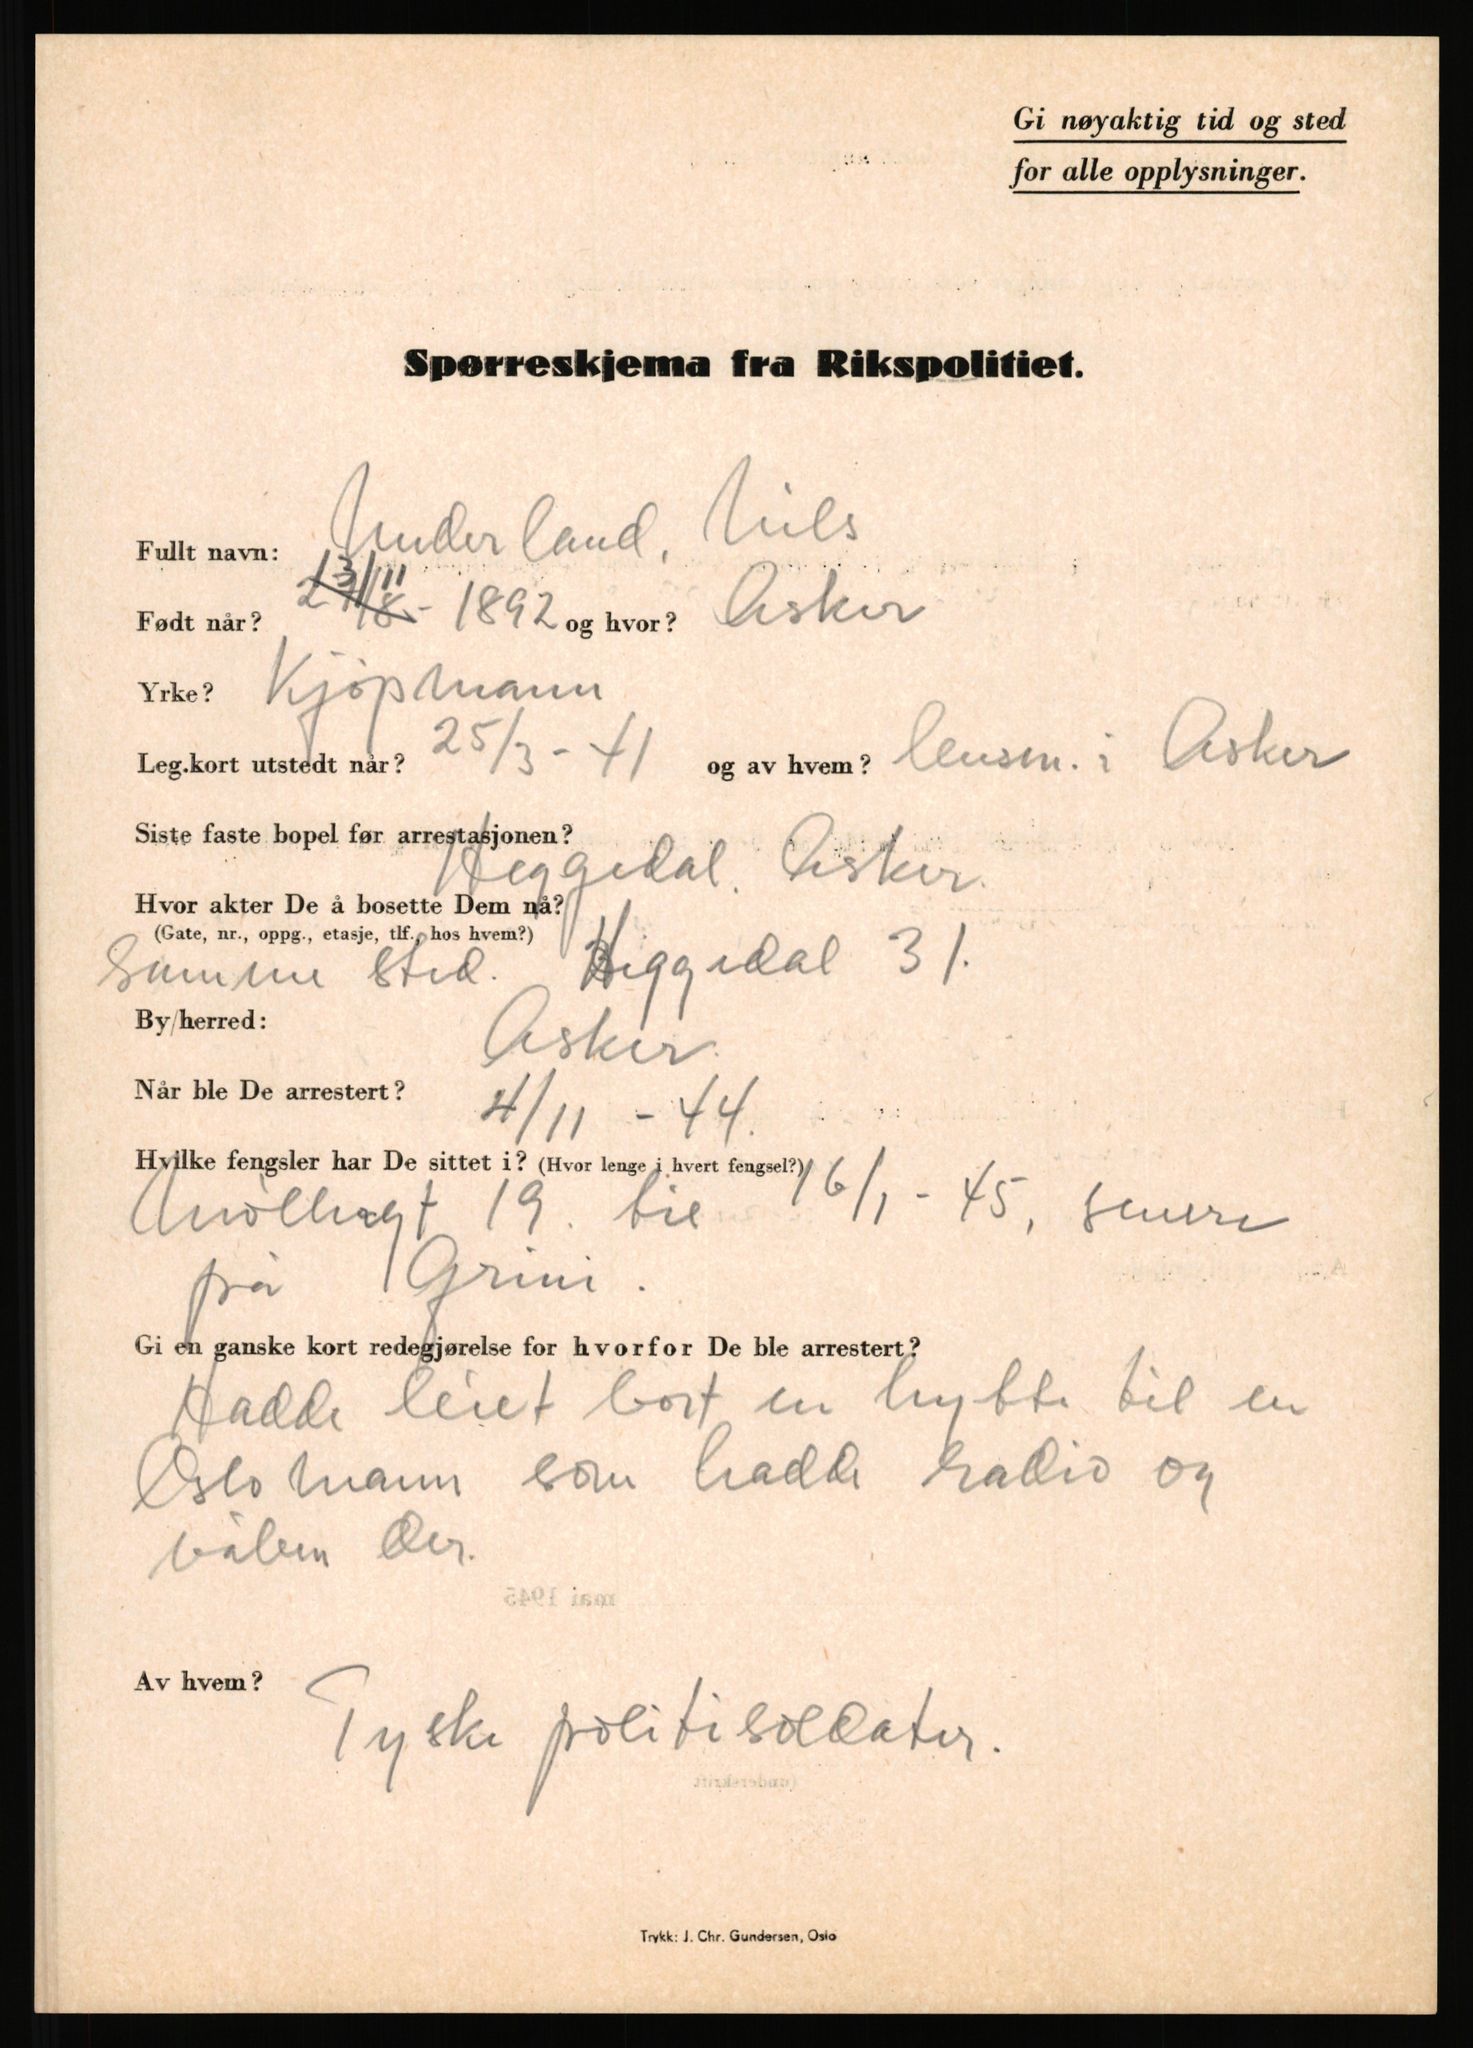 Gi nøyaktig tid og sted
for alle opplysninger.
Spørreskjema fra Rikspolitiet.
Fullt navn: Underland, Nils
Født når? 13/11 - 1892 og hvor? Asker
Yrke? Kjøpmann
Leg.kort utstedt når? 25/3 - 41 og av hvem? lensm. i Asker
Siste faste bopel før arrestasjonen?
Heggedal. Asker.
Hvor akter De å bosette Dem nå?
(Gate, nr., oppg., etasje, tlf., hos hvem?)
Samme sted. Heggedal 31.
By/herred: Asker.
Når ble De arrestert? 4/11 - 44.
Hvilke fengsler har De sittet i? (Hvor lenge i hvert fengsel?)
Møllergt 19. til 16/1 - 45, senere
på Grini.
Gi en ganske kort redegjørelse for hvorfor De ble arrestert?
Hadde leiet bort en hytte til en
Oslomann som hadde radio og
våben der.
mai 1945
Av hvem? Tyske politisoldater.
(underskrift)
Trykk: J. Chr. Gundersen, Oslo